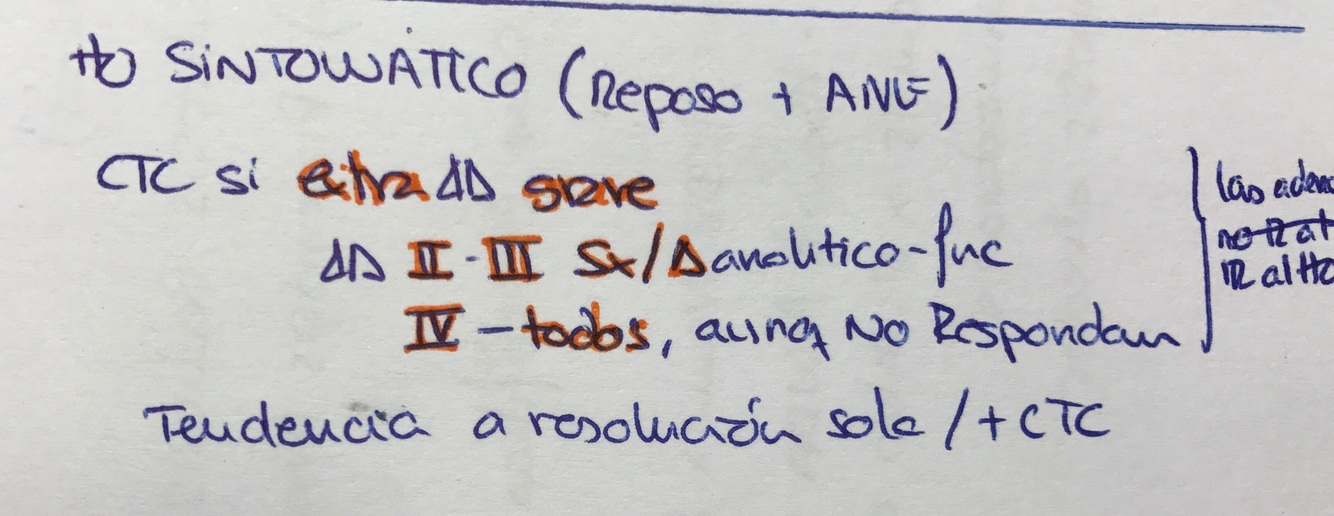 tto SINTOMÁTICO (Reposo + AINE)
CTC si extra ΔΔ grave
ΔΔ II - III Sx/Δ analítico-func
IV - todos, aunq No Respondan
las aden
no R at
R al tto
Tendencia a resolución sola / + CTC